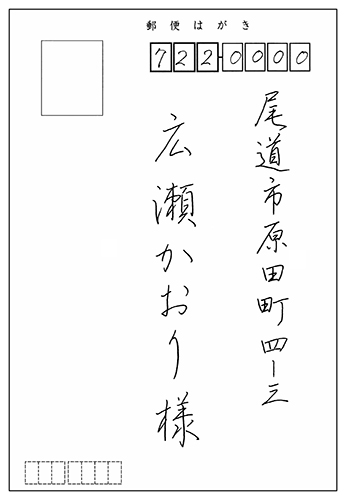 郵便はがき
722-0000
尾道市原田町四-三
広瀬かおり様